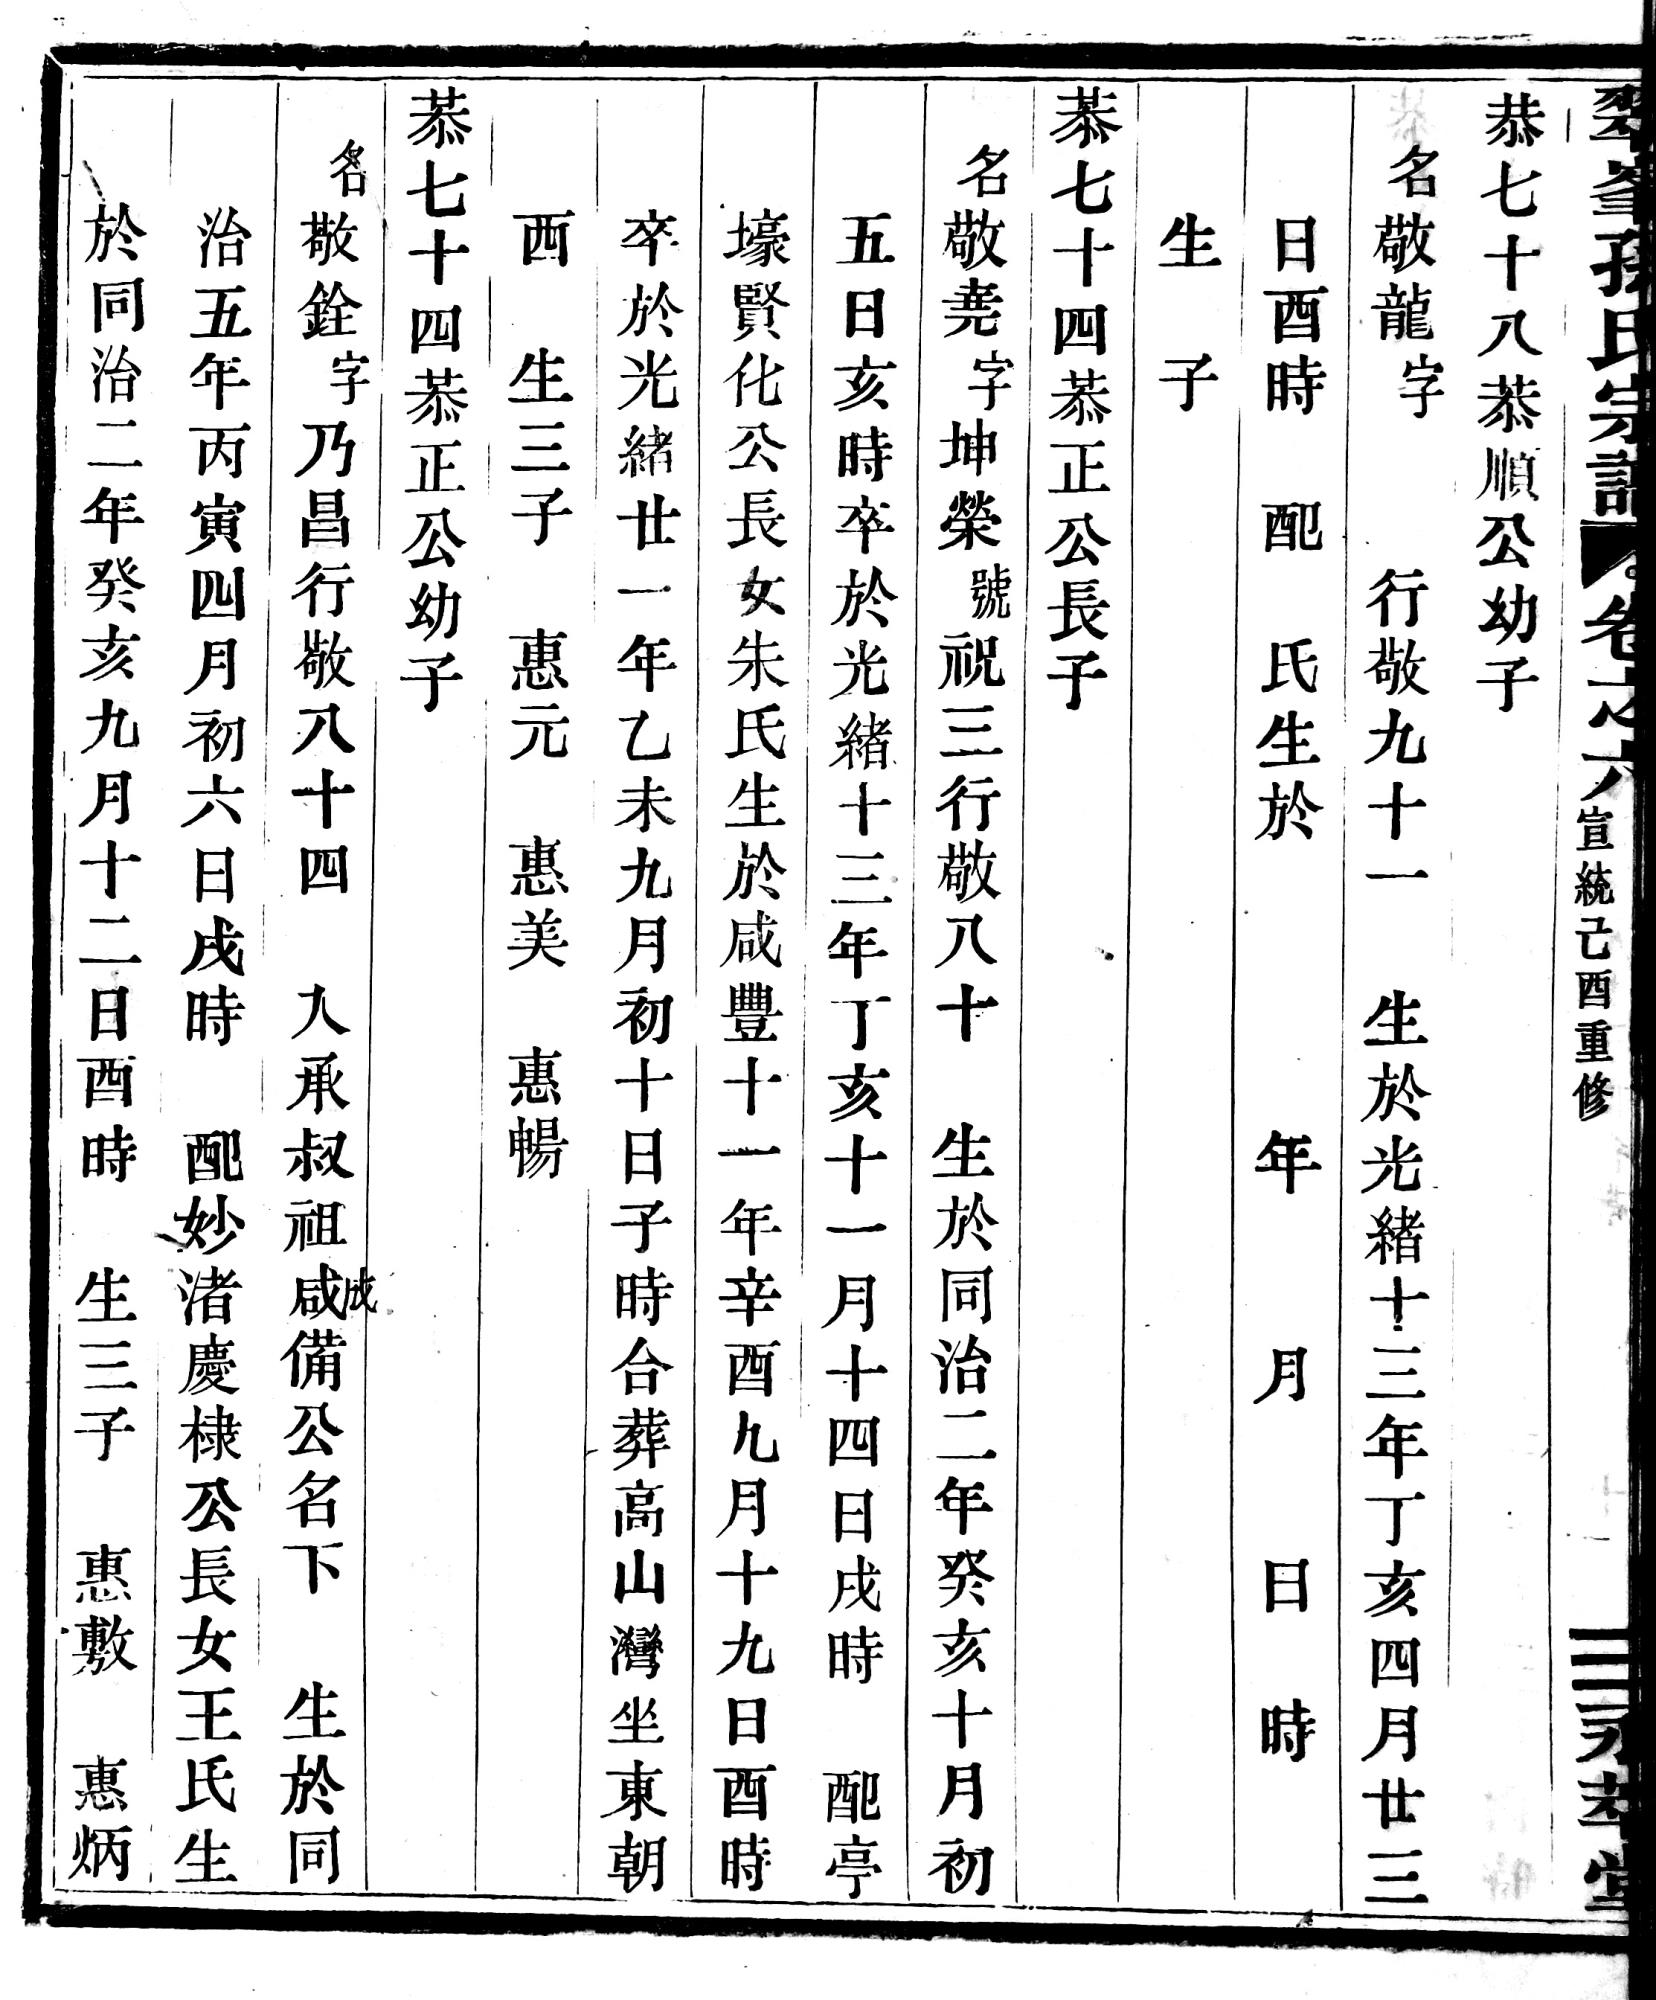 翠峯孫氏宗譜 卷之六 宣統己酉重修 三 永萃堂
恭七十八恭順公幼子
名敬龍字 行敬九十一 生於光緒十三年丁亥四月廿三
日酉時 配 氏生於 年 月 日 時
生 子
恭七十四恭正公長子
名敬堯字坤榮號祝三行敬八十 生於同治二年癸亥十月初
五日亥時卒於光緒十三年丁亥十一月十四日戌時 配亭
壕賢化公長女朱氏生於咸豐十一年辛酉九月十九日酉時
卒於光緒廿一年乙未九月初十日子時合葬高山灣坐東朝
西 生三子 惠元 惠美 惠暢
恭七十四恭正公幼子
名敬銓字乃昌行敬八十四 入承叔祖咸成備公名下 生於同
治五年丙寅四月初六日戌時 配妙渚慶棣公長女王氏生
於同治二年癸亥九月十二日酉時 生三子 惠敷 惠炳